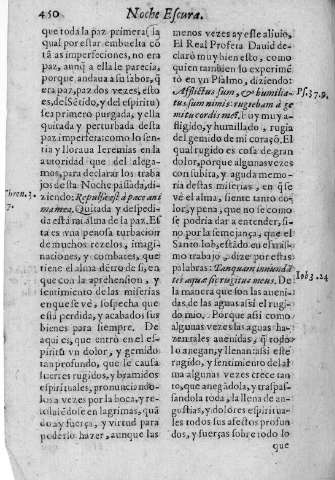 450
Noche Escura.
que toda la paz primera (la
qual por estar embuelta cō
tãs imperfeciones, no era
paz, aunq̃ a ella le parecia,
porque andaua a su labor, q̃
era paz, paz dos vezes, esto
es, del Sētido, y del espiritu)
sea primero purgada, y ella
quitada y perturbada desta
paz imperfeta como lo sen-
tia y lloraua Ieremias en la
autoridad que del alega-
mos, para declarar los traba
jos desta Noche passada, di-
ziendo: Repulsa est à pace ani
ma mea. Quitada y despedi-
da està mi alma de la paz. Es
ta es vna penosa turbacion
de muchos rezelos, imagi-
naciones, y combates, que
tiene el alma dētro de si, en
que con la aprehension, y
sentimiento de las miserias
en que se vè, sospecha que
està perdida, y acabados sus
bienes para siempre. De
aqui es, que entrò en el es-
piritu vn dolor, y gemido
tan profundo, que le causa
fuertes rugidos, y bramidos
espirituales, pronunciando-
los a vezes por la boca, y re-
soluiēdose en lagrimas, quã
do ay fuerça, y virtud para
poderlo hazer, aunque las
Thren. 3.
7.
menos vezes ay este aliuio.
El Real Profeta Dauid de-
clarò muy bien esto, como
quien tambien lo experimē
tò en vn Psalmo, diziendo:
Afflictus sum, & humilia-
tus sum nimis: rugiebam à ge
mitu cordis mei. Fuy muy a-
fligido, y humillado, rugia
del gemido de mi coraçõ. El
qual rugido es cosa de gran
dolor, porque algunas vezes
con subita, y aguda memo-
ria destas miserias, en q̃ se
vè el alma, siente tanto do-
lor, y pena, que no sè como
se podria dar a entender, si-
no por la semejança, que el
Santo Iob, estãdo en el mis-
mo trabajo, dize por estas
palabras: Tanquam inundã
tes aquæ sic rugitus meus. De
la manera que son las aueni-
das de las aguas assi el rugi-
do mio. Porque assi como
algunas vezes las aguas ha-
zen tales auenidas, q̃ todo
lo anegan, y llenan assi este
rugido, y sentimiento del al
ma algunas vezes crece tan-
to, que anegãdola, y traspas-
sandola toda, la llena de an-
gustias, y dolores espiritua-
les todos sus afectos profun-
dos, y fuerças sobre todo lo
que
Ps. 37. 9.
Iob 3. 24